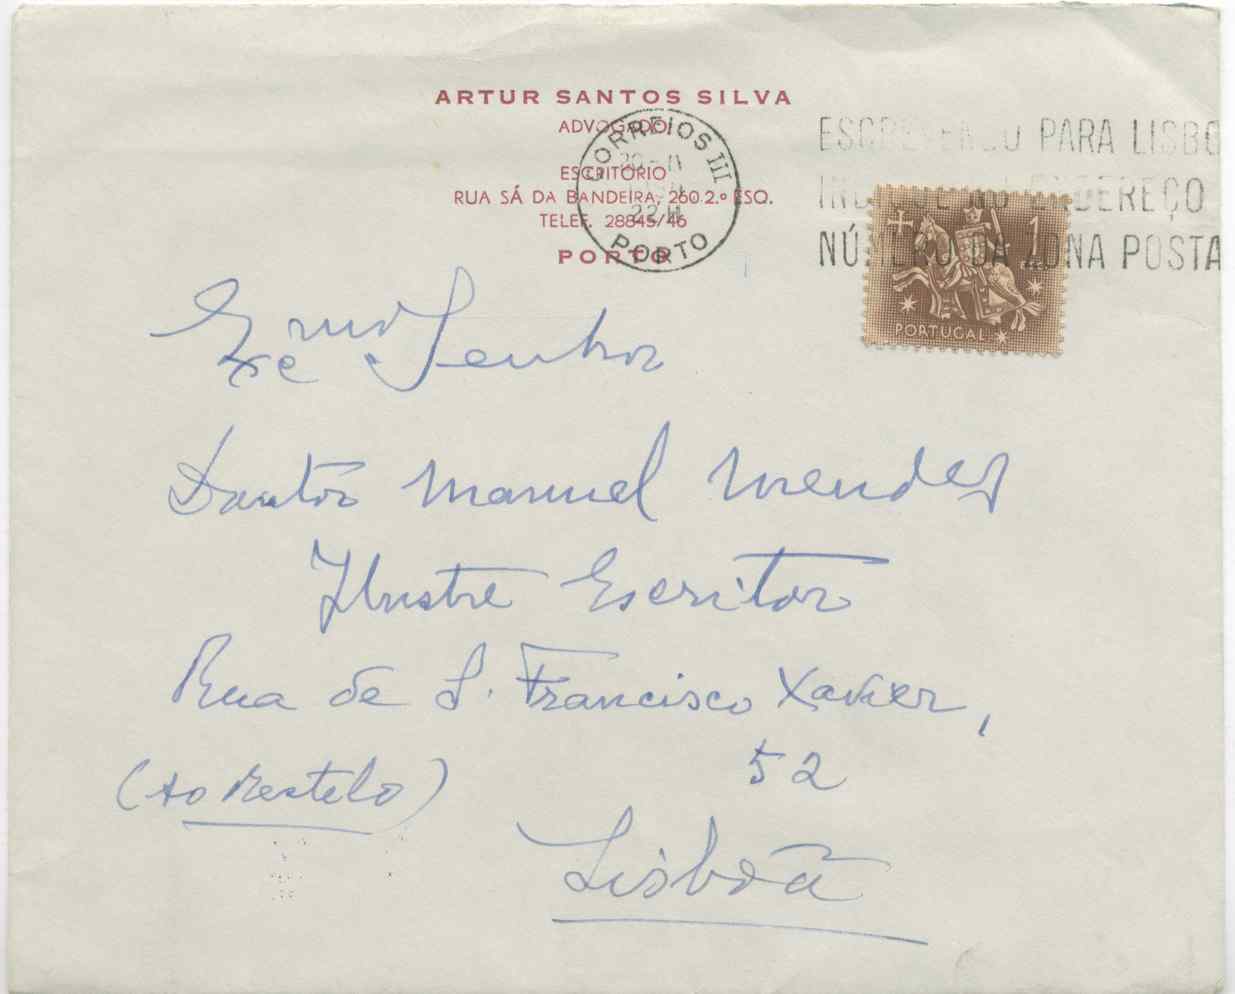 ARTUR SANTOS SILVA
ADVOGADO
ESCRITÓRIO
RUA SÁ DA BANDEIRA, 260.2.º ESQ.
TELEF. 28845/46
PORTO
CORREIOS III
22 H
PORTO
ESCREVENDO PARA LISBO
INDIQUE NO ENDEREÇO
NÚMERO DA ZONA POSTA
1
PORTUGAL
Exc.mo Senhor
Doutor Manuel Mendes
Ilustre Escritor
Rua de S. Francisco Xavier,
52
(ao Restelo)
Lisboa